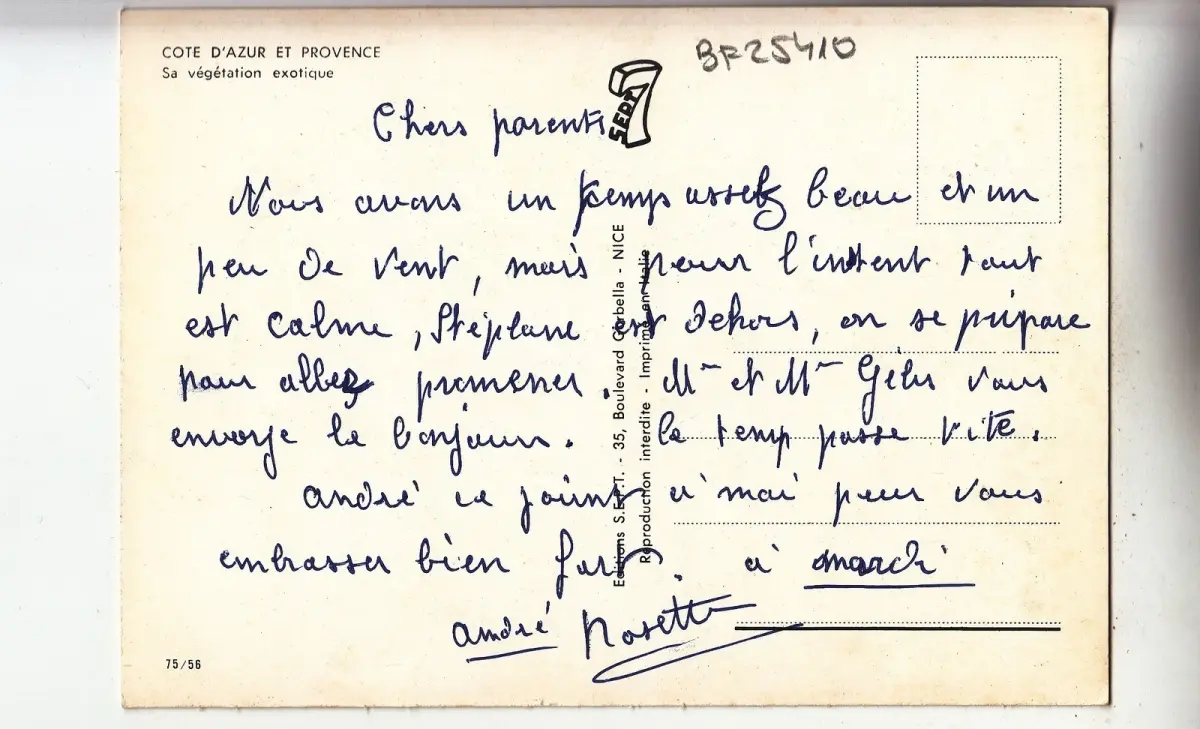 COTE D'AZUR ET PROVENCE
Sa végétation exotique
BF25410
SEPT
Chers parents
Nous avons un temps assez beau et un
peu de vent, mais pour l'intent tout
est calme, Stéplane est dehors, on se prépare
pour allez promener. Mr et Mme Gélis vous
envoye le bonjour. le temp passe vite.
andré ce joint à moi pour vous
embrasser bien fort. à mardi
andré Rosette
Editions S.E.P.T. - 35, Boulevard Gorbella - NICE
Reproduction interdite - Imprimé en Italie
75/56